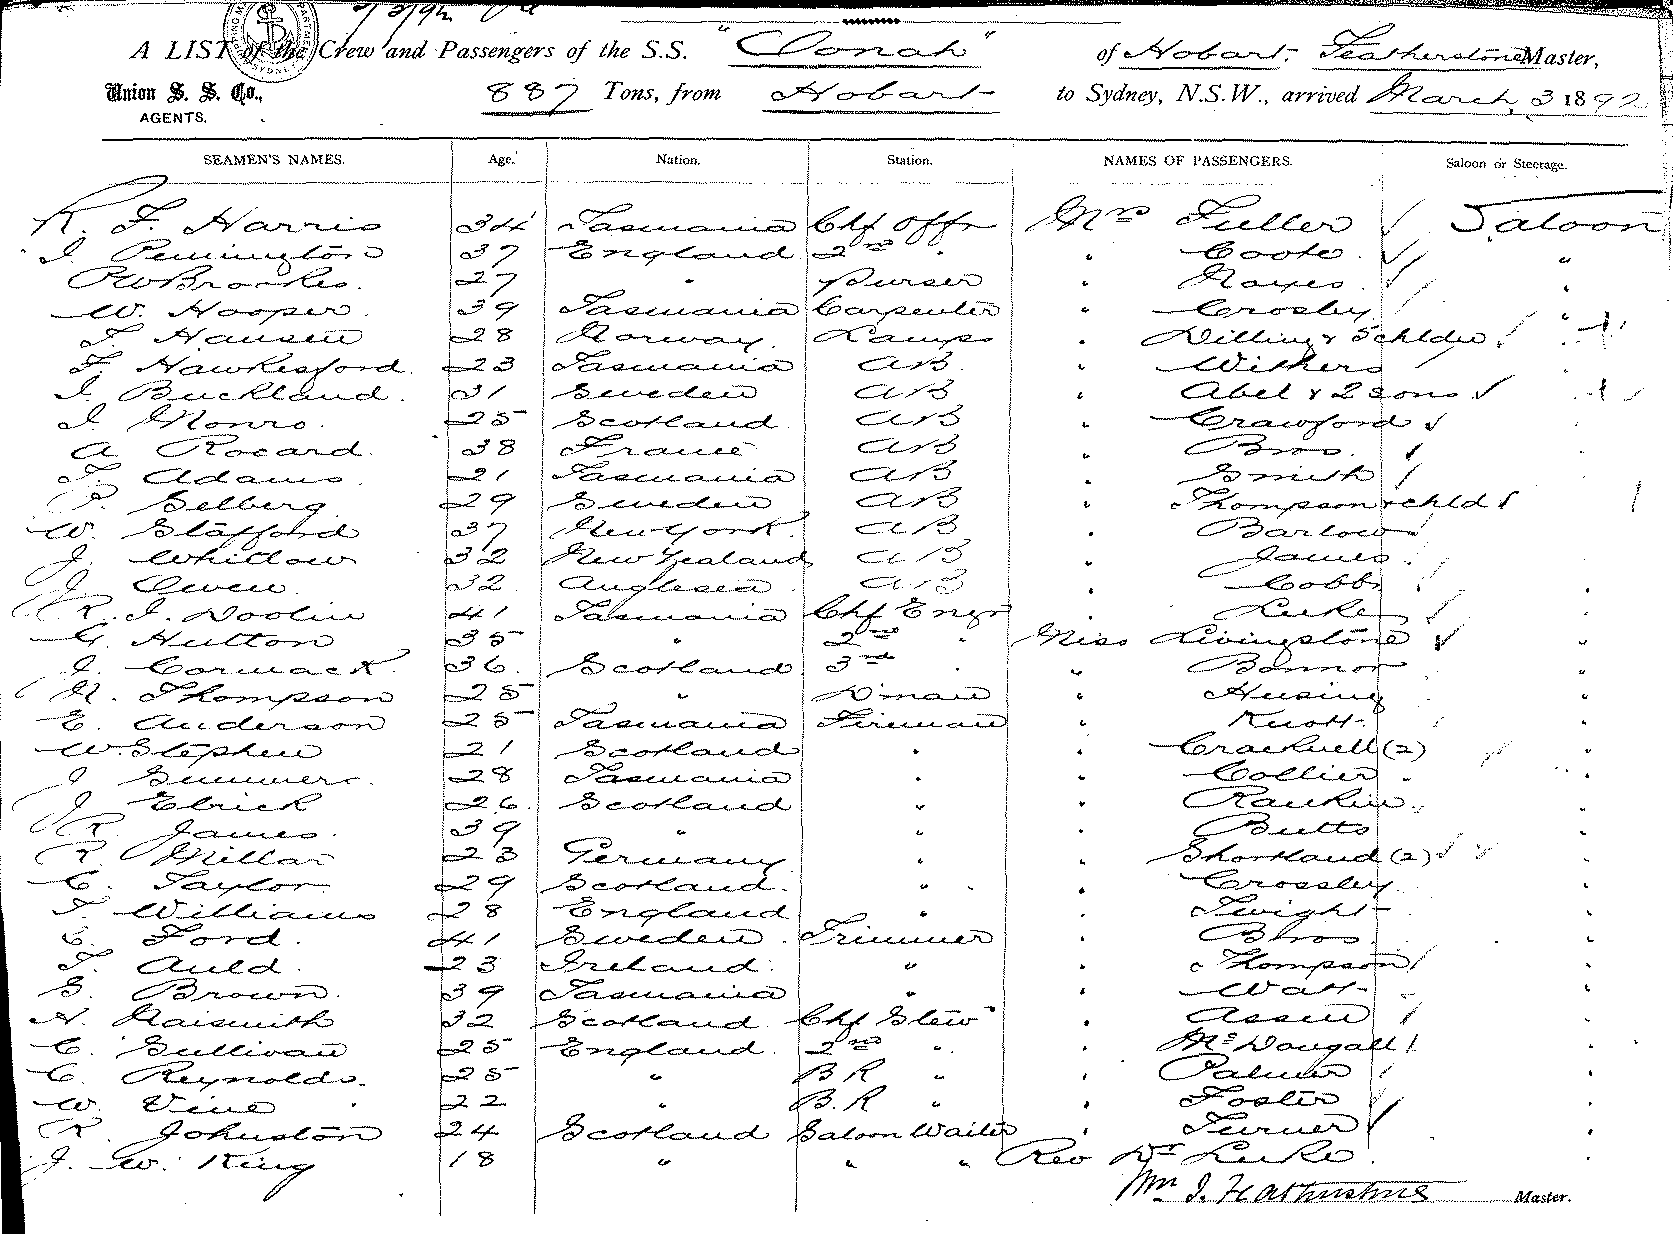 7/3/92
A LIST of the Crew and Passengers of the S.S. "Oonah" of Hobart, Featherstone Master,
Union S. S. Co., 887 Tons, from Hobart to Sydney, N.S.W., arrived March 3 1892
AGENTS.
SEAMEN'S NAMES. Age. Nation. Station. NAMES OF PASSENGERS. Saloon or Steerage.
R. F. Harris 34 Tasmania Chf Offr Mrs Fuller ✓ Saloon
J. Pennington 37 England 2nd " " Coote ✓ "
RW Brookes. 27 " Purser " Hayes ✓ "
W. Hooper 39 Tasmania Carpenter " Crosby "
T. Hansen 28 Norway. Lamps " Willing & 5 chldn "
F. Hawkesford. 23 Tasmania AB " Withers
J. Buckland. 31 Sweden AB " Abel & 2 sons ✓
J. Monro. 25 Scotland AB " Crawford ✓
A Rocard. 38 France AB " Bros.
T. Adams 21 Tasmania AB " Smith
P. Selberg 29 Sweden AB " Thompson & chld
W. Stafford 37 New York. AB " Barlow
J. Whitlow 32 New Zealand AB " James
J. Owen 32 Anglesea AB " Cobb
R. J. Doolin 41 Tasmania Chf Engr " Luke "
G. Hutton 35 " 2nd " Miss Livingstone ✓ "
J. Cormack 36 Scotland 3rd " " Bonnor "
N. Thompson 25 " D'man " Husing "
E. Anderson 25 Tasmania Fireman " Knott "
W. Stephen 21 Scotland " " Cracknell (2) "
J. Summers. 28 Tasmania " " Collier "
J. Elrick 26 Scotland " " Rankin "
R. James. 39 " " " Butts "
R. Millar 23 Germany " " Shortland (2) ✓ "
C. Taylor 29 Scotland. " " Crossley "
T. Williams 28 England " " Twight "
C. Ford. 41 Sweden. Trimmer " Bros "
T. Auld. 23 Ireland. " " Thompson "
G. Brown. 39 Tasmania " " Watt "
N. Naismith 32 Scotland Chf Stew " "
C. Sullivan 25 England. 2nd " " McDougall "
C. Reynolds. 25 " B R " " Palmer "
W. Vine 22 " B. R " " Foster "
R. Johnston 24 Scotland Saloon Waiter " Turner "
J. W. King 18 " " " Rev Dr Luke. "
Wm J. Featherstone Master.